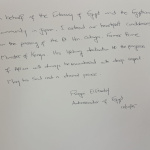 behalf of the Embassy of Egypt and the Egyptian
community in Japan, I extend our heartfelt condolences
on the passing of the Former Prime
Minister of Kenya. His lasting dedication to the progress
of Africa will always be remembered with deep respect
May his Soul rest in eternal peace.
Ambassador of Egypt